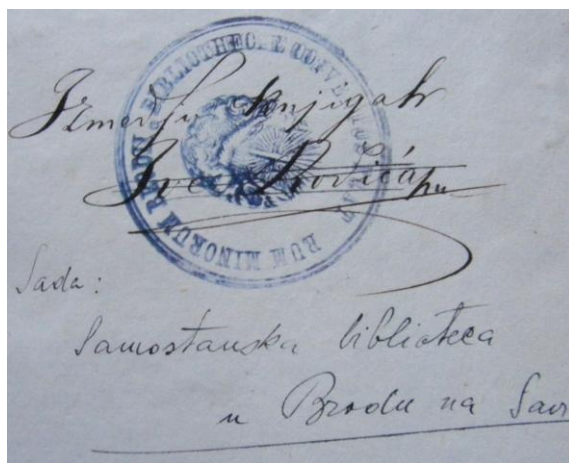 BIBLIOTHECAE CONVENTUS FRAT RUM MINORUM BRODII
Izmedju knjigah
Ives
Sada:
Samostanska biblioteca
u Brodu na Savi